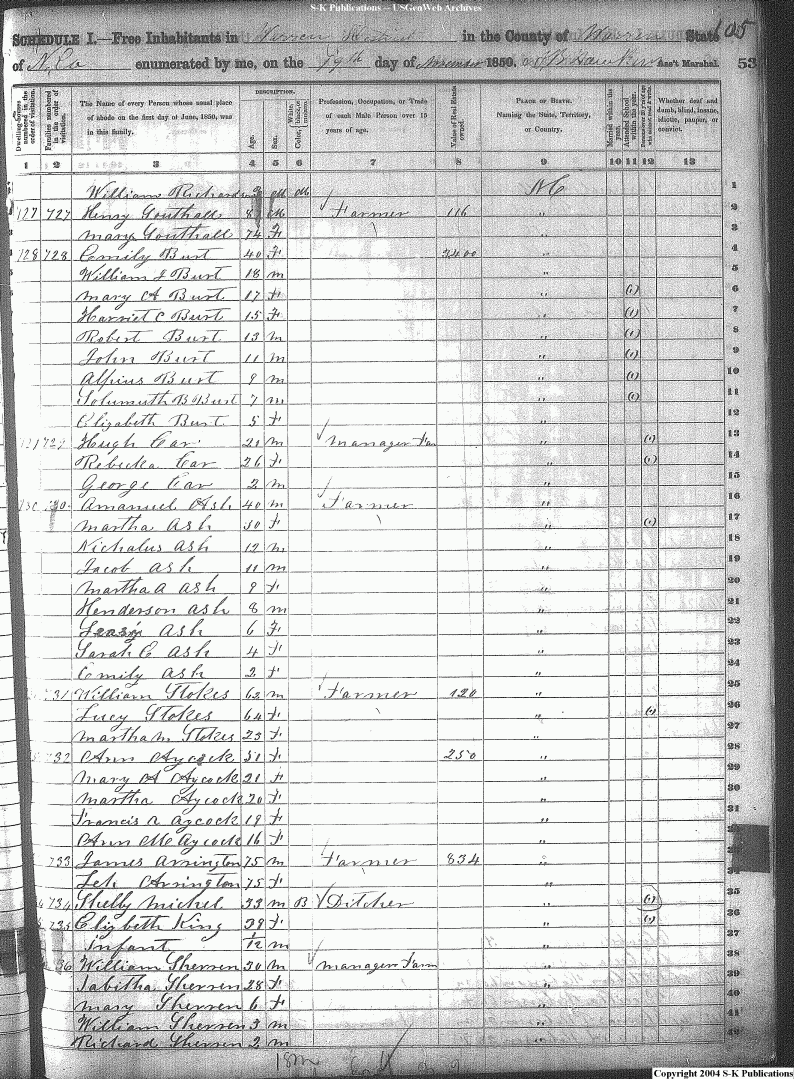 S-K Publications -- USGenWeb Archives
105
SCHEDULE I.—Free Inhabitants in Warren District in the County of Warren State
of N. Ca enumerated by me, on the 19th day of November 1850. J B Hawkins Ass't Marshal. 53
Dwelling-houses numbered in the order of visitation.
Families numbered in the order of visitation.
The Name of every Person whose usual place of abode on the first day of June, 1850, was in this family.
DESCRIPTION.
Age.
Sex.
White, black, or mulatto.
Color,
Profession, Occupation, or Trade of each Male Person over 15 years of age.
Value of Real Estate owned.
PLACE OF BIRTH. Naming the State, Territory, or Country.
Married within the year.
Attended School within the year.
Whether deaf and dumb, blind, insane, idiotic, pauper, or convict.
1 2 3 4 5 6 7 8 9 10 11 12 13
William Richardson M M NC 1
127 727 Henry Southall M Farmer 116 " 2
Mary Southall 74 F " 3
128 728 Emily Burt 40 F 2400 " 4
William J Burt 18 m " 5
Mary A Burt 17 F " (1) 6
Harriet C Burt 15 F " (1) 7
Robert Burt 13 m " (1) 8
John Burt 11 m " (1) 9
Alpius Burt 9 m " (1) 10
Burt 7 m " (1) 11
Elizabeth Burt 5 F " 12
729 Hugh Car 21 m manager Far " (1) 13
Rebecka Car 26 F " (1) 14
George Car 2 m " 15
Amanuel Ash 40 m Farmer " 16
Martha Ash 30 F " (1) 17
Nicholus Ash 12 m " 18
Jacob Ash 11 m " 19
Martha A Ash 9 F " 20
Henderson Ash 8 m " 21
Ash 6 F " 22
Sarah C Ash 4 F " 23
Emily Ash 2 F " 24
731 William Stokes 62 m Farmer 120 " 25
Lucy Stokes 64 F " (1) 26
Martha M Stokes 23 F " 27
732 Ann Aycock 51 F 250 " 28
Mary A Aycock 21 F " 29
Martha Aycock 20 F " 30
Francis A Aycock 19 F " 31
Ann Mc Aycock 16 F "
733 James Arrington 75 m Farmer 834 "
Arrington 75 F "
734 Shelly Michel 33 m B Ditcher " (1) 35
735 Elizbeth King 39 F " (1) 36
Infant 1/12 m " 37
736 William Sherren 30 m manager Farm " 38
Tabitha Sherren 28 F " 39
Mary Sherren 6 F " 40
William Sherren 3 m " 41
Richard Sherren 2 m " 42
18m
Copyright 2004 S-K Publications